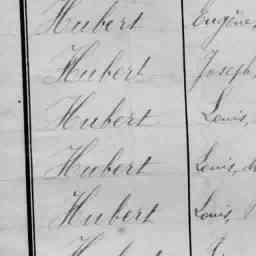 Hubert Eugène,
Hubert Joseph
Hubert Louis,
Hubert Louis,
Hubert Louis,